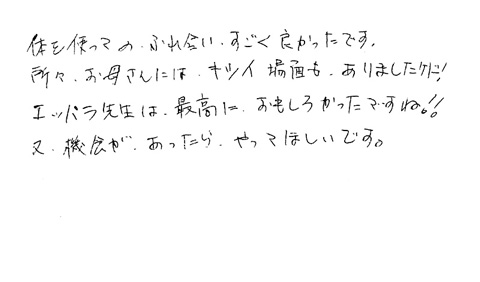 体を使っての、ふれ合い、すごく良かったです。
所々、お母さんには、キツイ場面も、ありましたケド!
エッパラ先生は、最高に、おもしろかったですね。!!
又、機会が、あったら、やってほしいです。